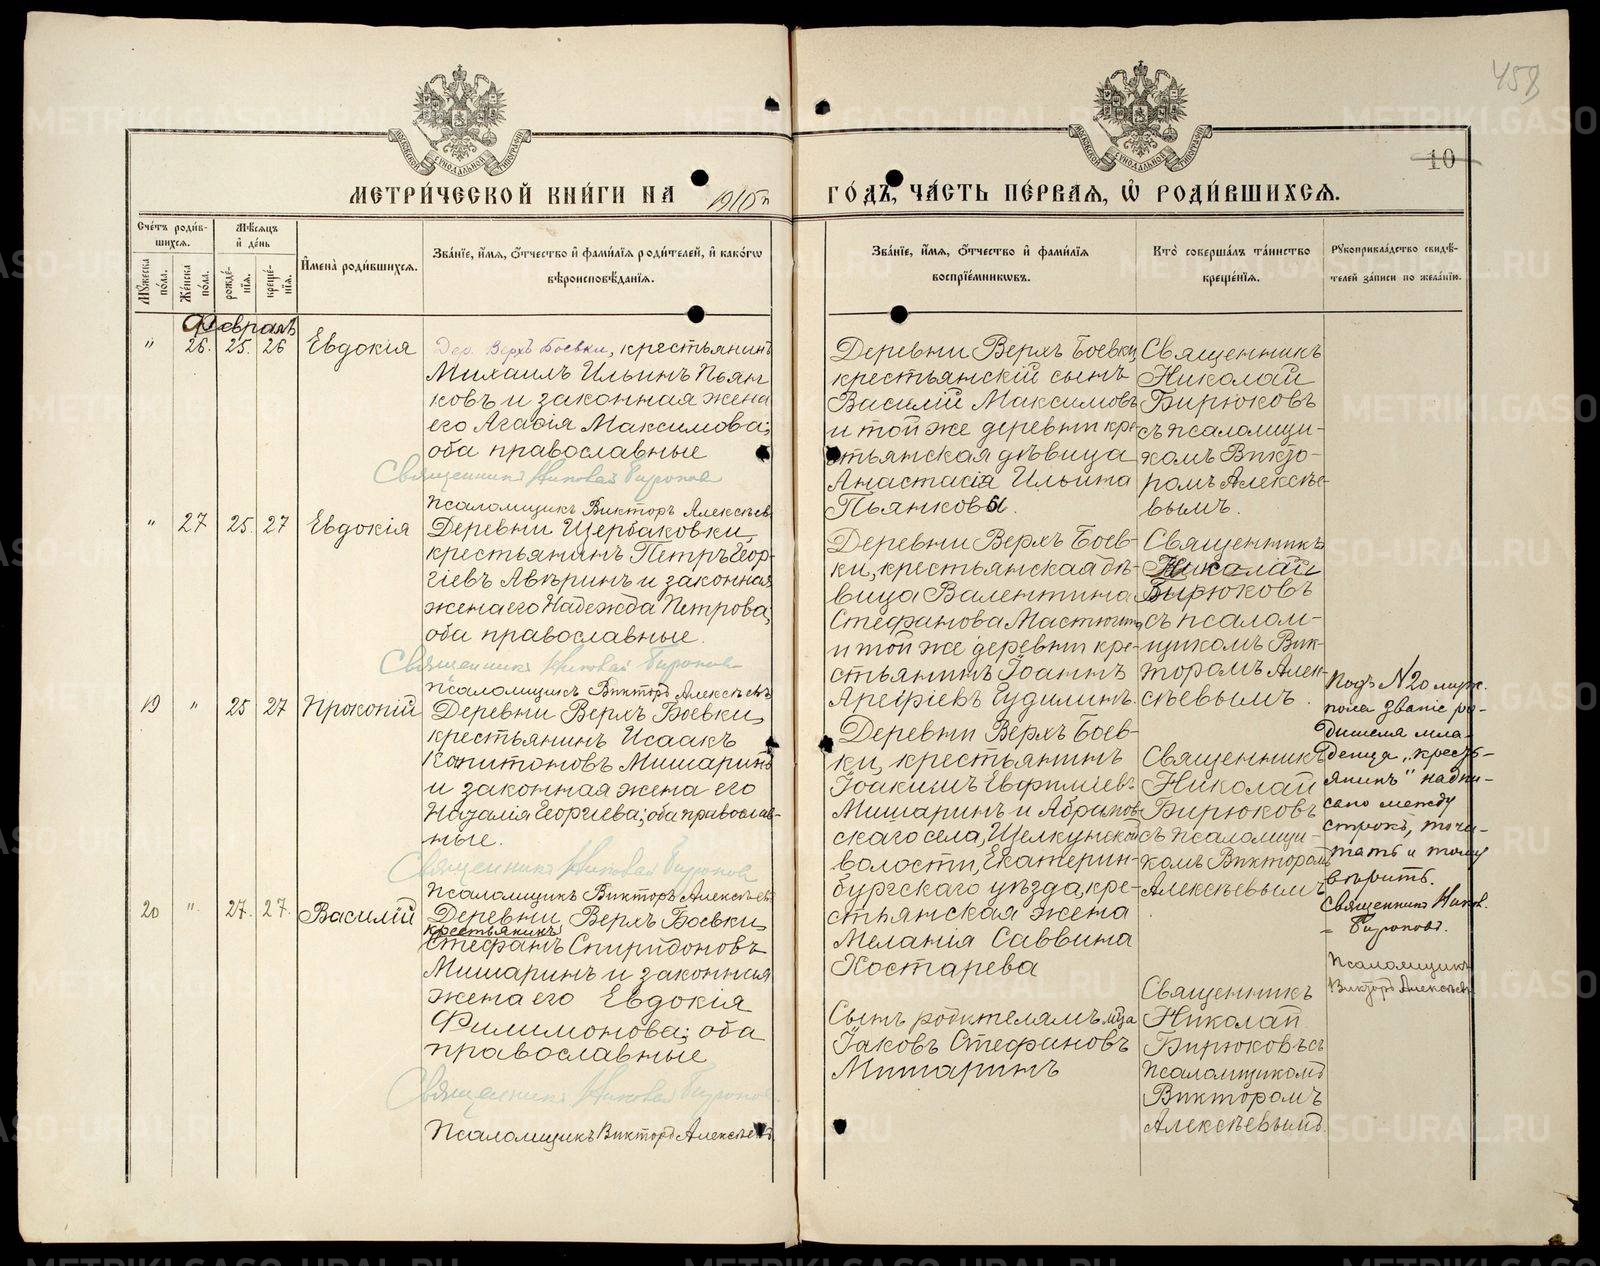 459
10
МЕТРИ́ЧЕСКОЙ КНИ́ГИ НА 1916 ГО́ДЪ, ЧА́СТЬ ПЕ́РВАЯ, Ѡ РОДИ́ВШИХСЯ.
Сче́тъ роди́в-
шихся.
Му́жеска по́ла.
Же́нска по́ла.
Мѣ́сяцъ
и҆ де́нь
рожде́-
нїя.
креще́-
нїя.
И҆мена̀ роди́вшихся.
Зва́нїе, и҆́мя, ѻ҆́тчество и҆ фами́лїя роди́телей, и҆ како́гѡ
вѣроисповѣ́данїя.
Зва́нїе, и҆́мя, ѻ҆́тчество и҆ фами́лїя
воспрїе́мникѡвъ.
Кто̀ соверша́лъ та́инство
креще́нїя.
Рꙋкоприкла́дство свидѣ́-
телей за́писи по жела́нїю.
Февраль
" 26. 25. 26 Евдокія
Дер. Верхъ Боевки, крестьянинъ
Михаилъ Ильинъ Пьян
ковъ и законная жена
его Агафія Максимова;
оба православные
Священникъ Николай Бирюковъ
Псаломщикъ Викторъ Алексѣевъ
Деревни Верхъ Боевки
крестьянскій сынъ
Василій Максимовъ
и той же деревни кре-
стьянская дѣвица
Анастасія Ильина
Пьянковы.
Священникъ
Николай
Бирюковъ
съ псаломщи-
комъ Викто-
ромъ Алексѣе-
вымъ.
" 27 25. 27 Евдокія
Деревни Щербаковки
крестьянинъ Петръ Геор-
гіевъ Аверинъ и законная
жена его Надежда Петрова;
оба православные.
Священникъ Николай Бирюковъ
Псаломщикъ Викторъ Алексѣевъ
Деревни Верхъ Боев-
ки, крестьянская дѣ-
вица Валентина
Стефанова Мастюгина
и той же деревни кре-
стьянинъ Іоаннъ
Арефіевъ Гудилинъ.
Священникъ
Николай
Бирюковъ
съ псалом-
щикомъ Вик-
торомъ Алек-
сѣевымъ.
19 " 25 27 Прокопій
Деревни Верхъ Боевки,
крестьянинъ Исаакъ
Капитоновъ Мишаринъ
и законная жена его
Наталія Георгіева; оба православ-
ные.
Священникъ Николай Бирюковъ
Псаломщикъ Викторъ Алексѣевъ
Деревни Верхъ Боев-
ки, крестьянинъ
Іоакимъ Евфиміевъ
Мишаринъ и Абрамов-
скаго села, Щелкунской
волости, Екатерин-
бургскаго уѣзда, кре-
стьянская жена
Меланія Саввина
Костарева
Священникъ
Николай
Бирюковъ
съ псаломщи-
комъ Викторомъ
Алексѣевымъ
Подъ №20 муж.
пола званіе ро-
дителя мла-
денца „кресть-
янинъ" надпи-
сано между
строкъ, чита-
тать и тому
вѣрить.
Священникъ Никол.
Бирюковъ.
Псаломщикъ
Викторъ Алексѣевъ
20 " 27. 27. Василій
Деревни Верхъ Боевки,
крестьянинъ
Стефанъ Спиридоновъ
Мишаринъ и законная
жена его Евдокія
Филимонова; оба
православные
Священникъ Николай Бирюковъ.
Псаломщикъ Викторъ Алексѣевъ
Сынъ родителямъ
Іаковъ Стефановъ
Мишаринъ
Священникъ
Николай
Бирюковъ съ
псаломщикомъ
Викторомъ
Алексѣевымъ